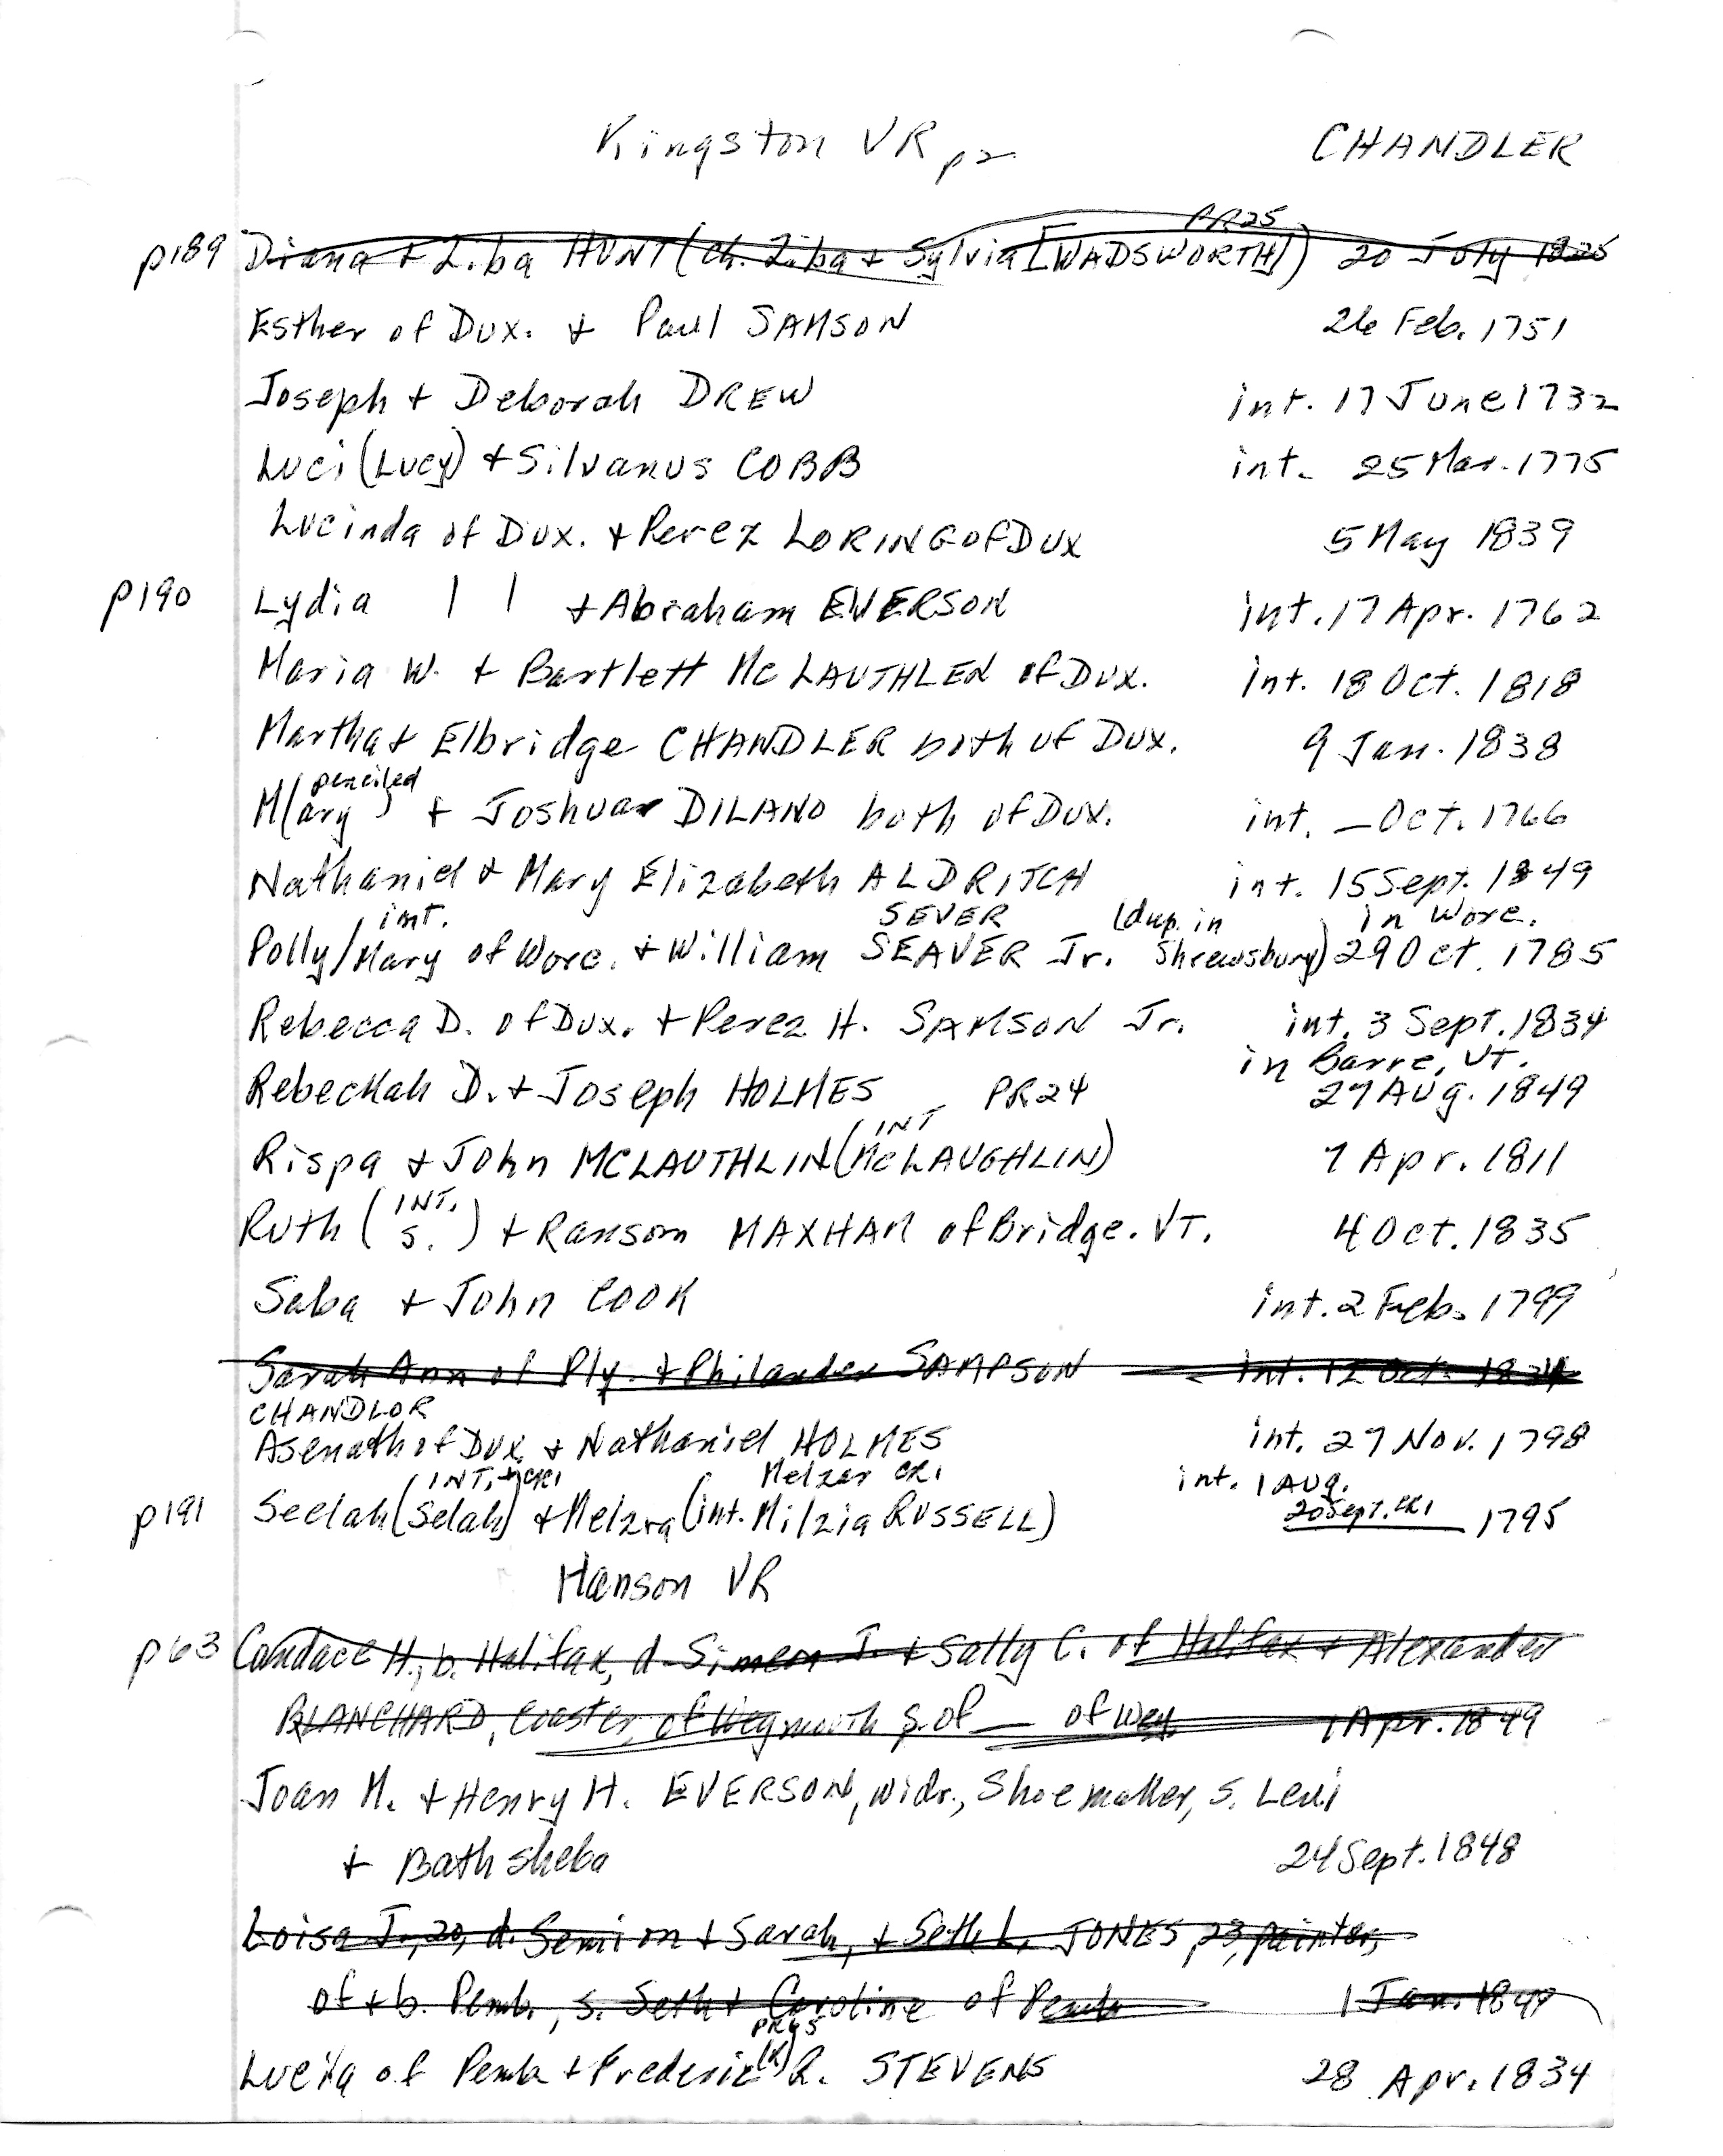 Kingston VR p2 CHANDLER
PR25
p189 Diana + Ziba HUNT (ch. Ziba + Sylvia [WADSWORTH]) 20 July 1825
Esther of Dux. + Paul SAMSON 26 Feb. 1751
Joseph + Deborah DREW int. 17 June 1732
Luci (Lucy) + Silvanus COBB int. 25 Mar. 1775
Lucinda of Dux. + Perez LORING of DUX 5 May 1839
p190 Lydia | | + Abraham EVERSON int. 17 Apr. 1762
Maria W. + Bartlett Mc LAUTHLEN of Dux. int. 18 Oct. 1818
Martha + Elbridge CHANDLER both of Dux. 9 Jan. 1838
penciled
M(ary) + Joshua DILANO both of Dux. int. — Oct. 1766
Nathaniel + Mary Elizabeth ALDRITCH int. 15 Sept. 1849
int. SEVER (dup. in in Worc.
Polly/Mary of Worc. + William SEAVER Jr. Shrewsbury) 29 Oct. 1785
Rebecca D. of Dux. + Perez H. SAMSON Jr. int. 3 Sept. 1834
in Barre, VT.
Rebeckah D. + Joseph HOLMES PR24 27 Aug. 1849
INT
Rispa + John MCLAUTHLIN (McLAUGHLIN) 7 Apr. 1811
INT.
Ruth (S.) + Ransom MAXHAM of Bridge. VT. 4 Oct. 1835
Saba + John COOK int. 2 Feb. 1799
Sarah Ann of Ply. + Philander SAMPSON int. 12 Oct. 1834
CHANDLOR
Asenath of Dux. + Nathaniel HOLMES int. 27 Nov. 1798
INT. + CR1 Melzar CR1 int. 1 Aug.
p191 Seelah (Selah) + Melzra (int. Milzia RUSSELL) 20 Sept. CR1 1795
Hanson VR
p63 Candace H., b. Halifax, d. Simeon J. + Sally C. of Halifax + Alexander
BLANCHARD, Coaster, of Weymouth s. of — of Wey. 1 Apr. 1849
Joan M. + Henry H. EVERSON, widr., Shoemaker, s. Levi
+ Bathsheba 24 Sept. 1848
Loisa J., 20, d. Semion + Sarah, + Seth L. JONES, 23, painter,
of + b. Pemb., s. Seth + Caroline of Pemb 1 Jan. 1849
PR95
Lucita of Pemb + Frederic(k) R. STEVENS 28 Apr. 1834